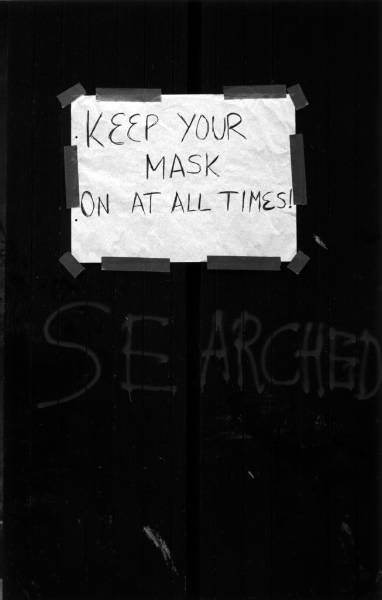 KEEP YOUR
MASK
ON AT ALL TIMES!
SEARCHED